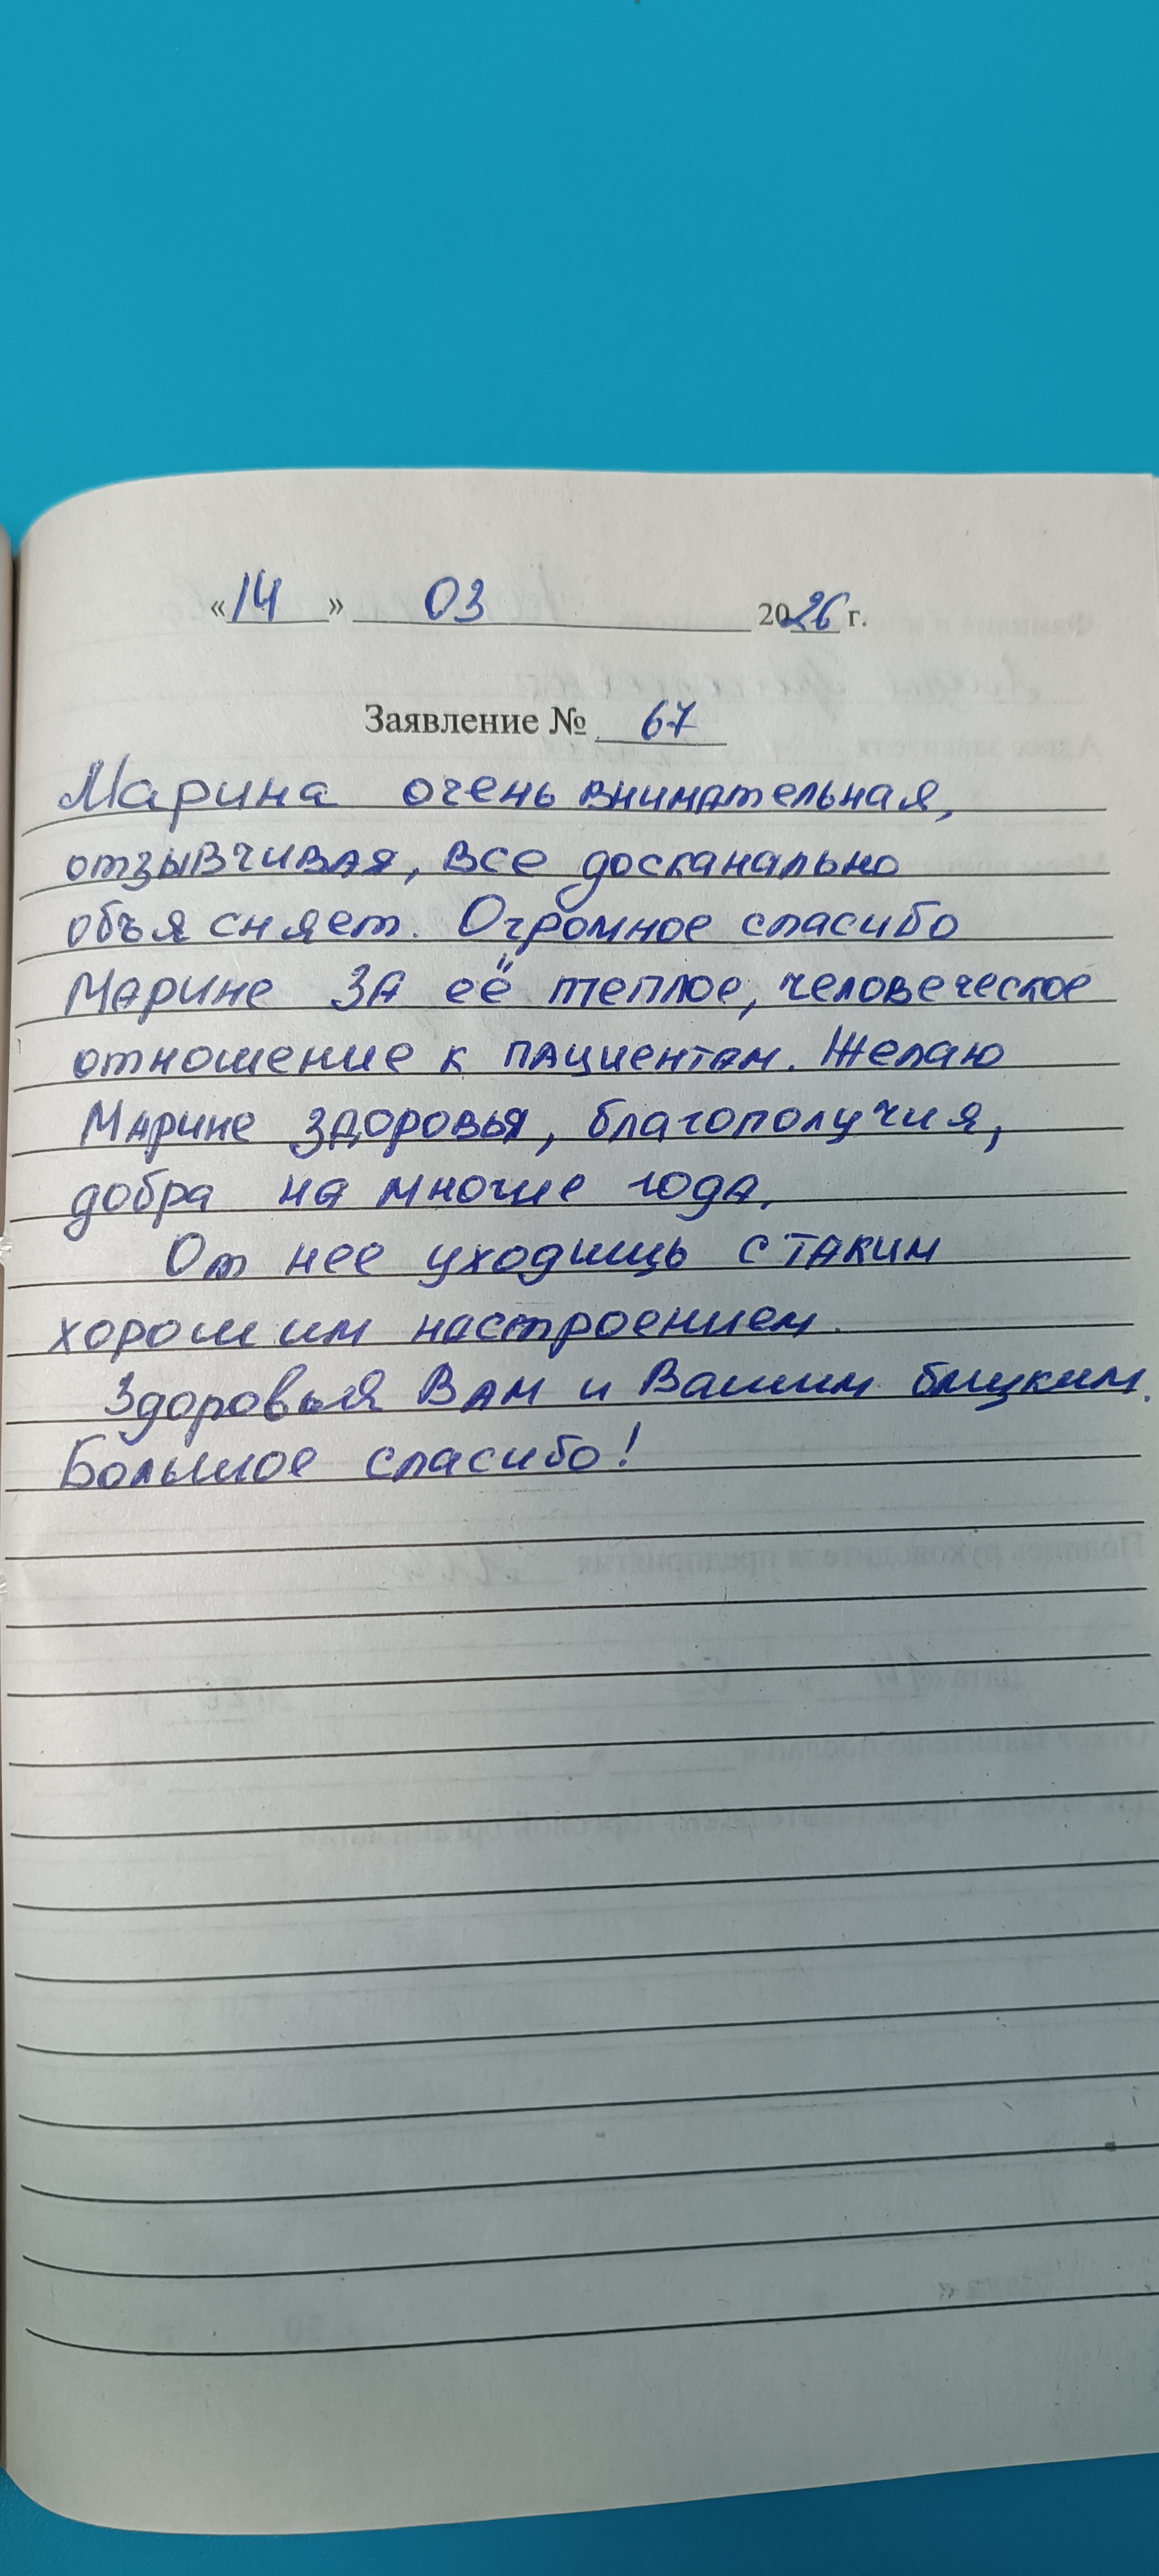 «14» 03 2026 г.
Заявление № 67
Марина очень внимательная,
отзывчивая, все досканально
объясняет. Огромное спасибо
Марине за её теплое, человеческое
отношение к пациентам. Желаю
Марине здоровья, благополучия,
добра на многие года,
От нее уходишь с таким
хорошим настроением.
Здоровья Вам и Вашим близким.
Большое спасибо!